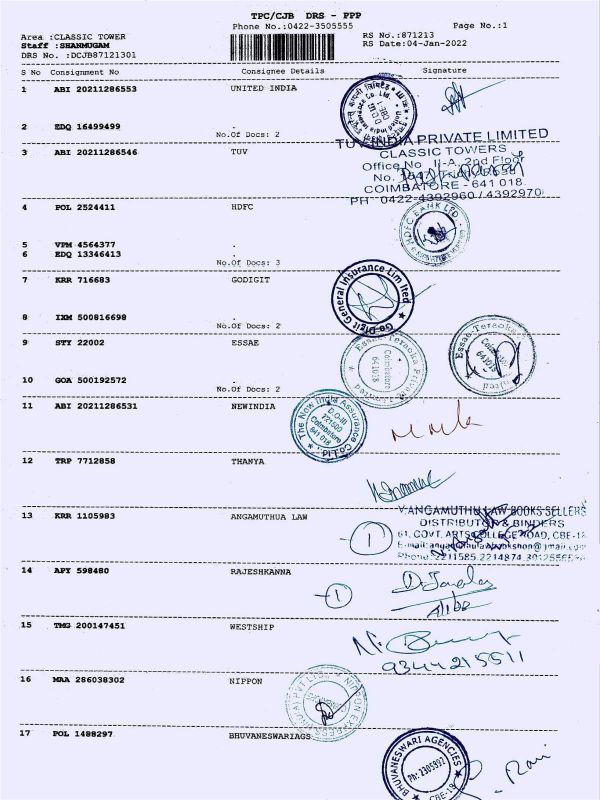 TPC/CJB DRS - PPP
Phone No.:0422-3505555 Page No.:1
Area :CLASSIC TOWER RS No.:871213
Staff :SHANMUGAM RS Date:04-Jan-2022
DRS No. :DCJB87121301
S No Consignment No Consignee Details Signature
1 ABI 20211286553 UNITED INDIA
2 EDQ 16499499 .
No.Of Docs: 2
3 ABI 20211286546 TUV
TUV INDIA PRIVATE LIMITED
CLASSIC TOWERS
Office No. II-A, 2nd Floor
COIMBATORE - 641 018.
PH : 0422-4392960 / 4392970
4 POL 2524411 HDFC
HDFC BANK LTD
5 VPM 4564377 .
6 EDQ 13346413 .
No.Of Docs: 3
7 KRR 716683 GODIGIT
Go Digit General Insurance Limited
8 IXM 500816698 .
No.Of Docs: 2
9 STY 22002 ESSAE
Essae-Teraoka Private Limited
Coimbatore
641018
Essae-Teraoka
Coimbatore
641018
10 GOA 500192572 .
No.Of Docs: 2
11 ABI 20211286531 NEWINDIA
The New India Assurance Co. Ltd.
D.O-III
721500
Coimbatore
641 018
12 TRP 7712858 THANYA
13 KRR 1105983 ANGAMUTHUA LAW
1
V.ANGAMUTHU LAW BOOKS SELLERS
DISTRIBUTOR & BINDERS
61, GOVT. ARTS COLLEGE ROAD, CBE-18
14 APY 598480 RAJESHKANNA
1
15 TMG 200147451 WESTSHIP
9344215511
16 MAA 286038302 NIPPON
NIPPON EXPRESS
17 POL 1488297 BHUVANESWARIAGS
BHUVANESWARI AGENCIES
Ph: 2305992
CBE-18
Ravi